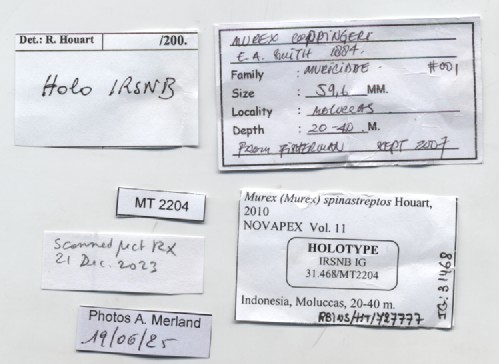 Det.: R. Houart /200.
Holo IRSNB
MUREX COPPINGERI
E.A. SMITH 1884.
Family : MURICIDAE #001
Size : 59,6 MM.
Locality : MOLUCCAS
Depth : 20-40 M.
FROM FISHERMAN SEPT 2007
MT 2204
Scanned pict RX
21 Dec. 2023
Photos A. Merland
19/06/25
Murex (Murex) spinastreptos Houart,
2010
NOVAPEX Vol. 11
HOLOTYPE
IRSNB IG
31.468/MT2204
Indonesia, Moluccas, 20-40 m.
RBINS/HT/727777
IG: 31468